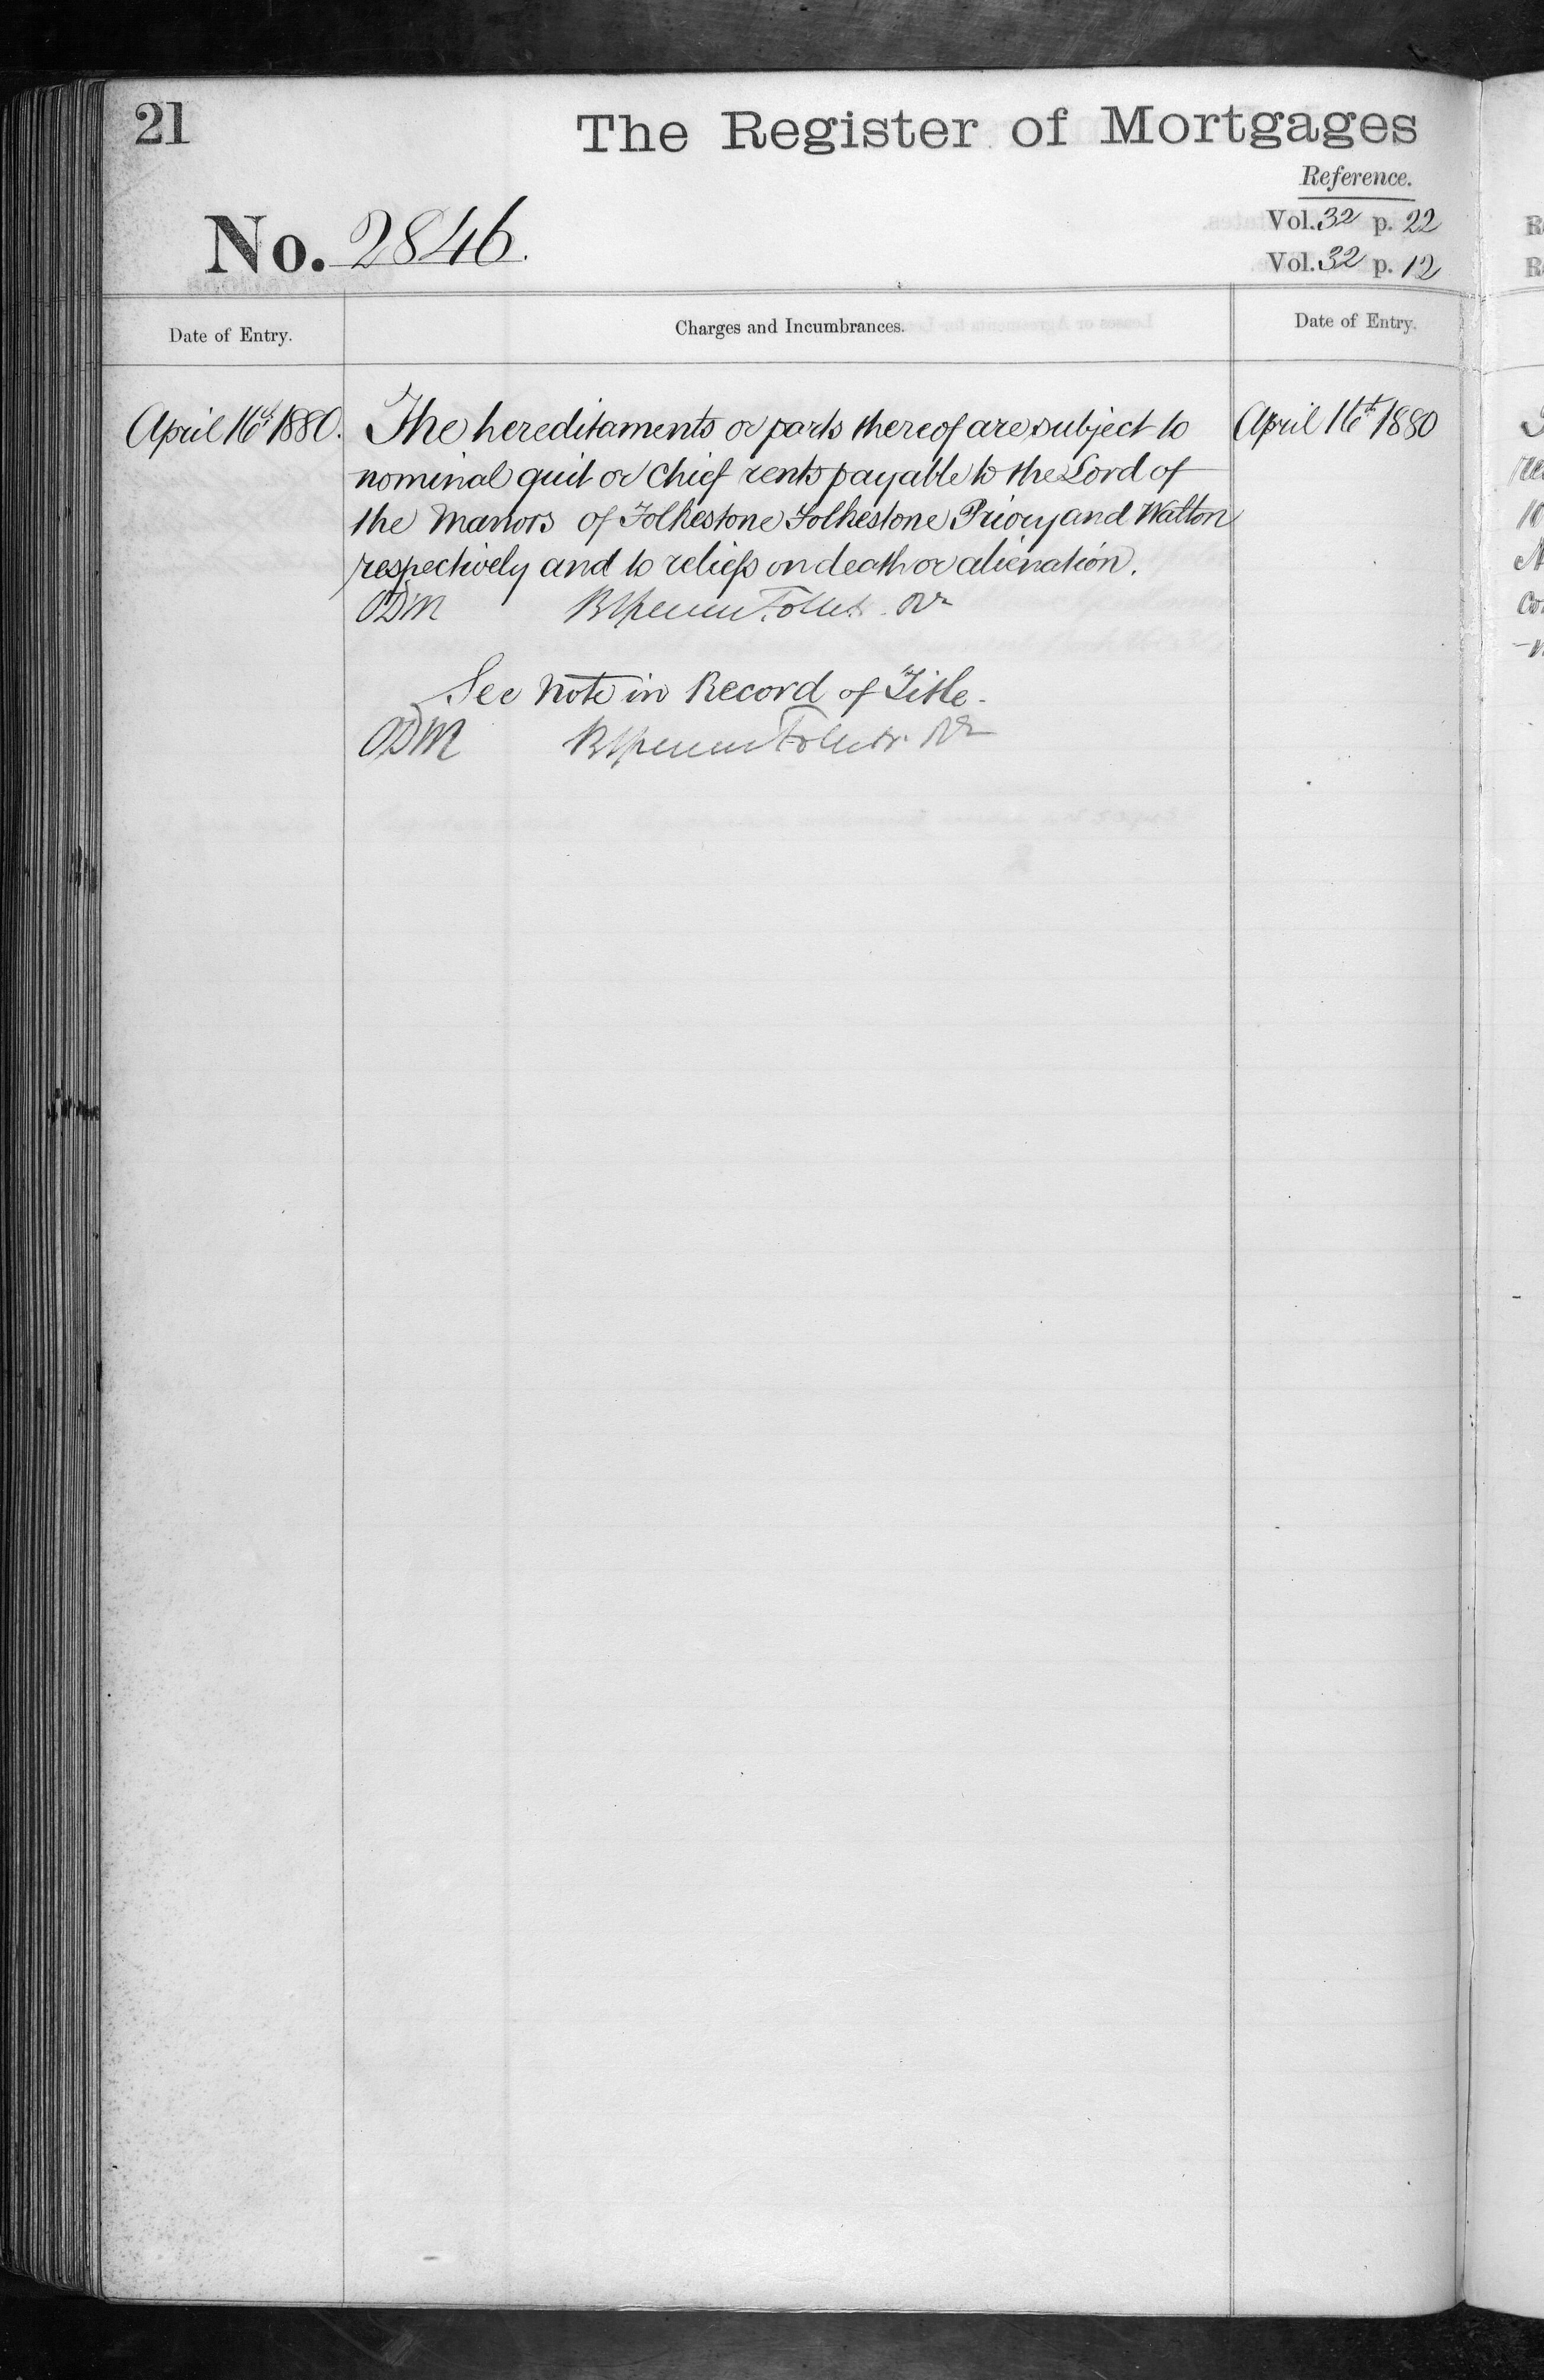 21
The Register of Mortgages
Reference.
Vol. 32 p. 22
No. 2846.
Vol. 32 p. 12
Date of Entry.
Charges and Incumbrances.
Date of Entry.
April 16th 1880.
The hereditaments or parts thereof are subject to
nominal quit or Chief rents payable to the Lord of
the Manors of Folkestone Folkestone Priory and Walton
respectively and to reliefs on death or alienation.
ODM
April 16th 1880
See note in Record of Title.
ODM